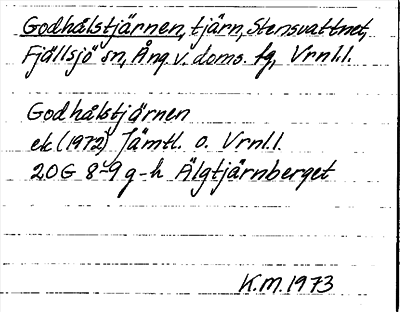 Godhålstjärnen, tjärn, Stensvattnet,
Fjällsjö sn, Ång. v. doms. fg, Vrnl.l.
Godhålstjärnen
ek (1972) Jämtl. o. Vrnl.l.
20G 8-9 g-h Älgtjärnberget
K.M. 1973